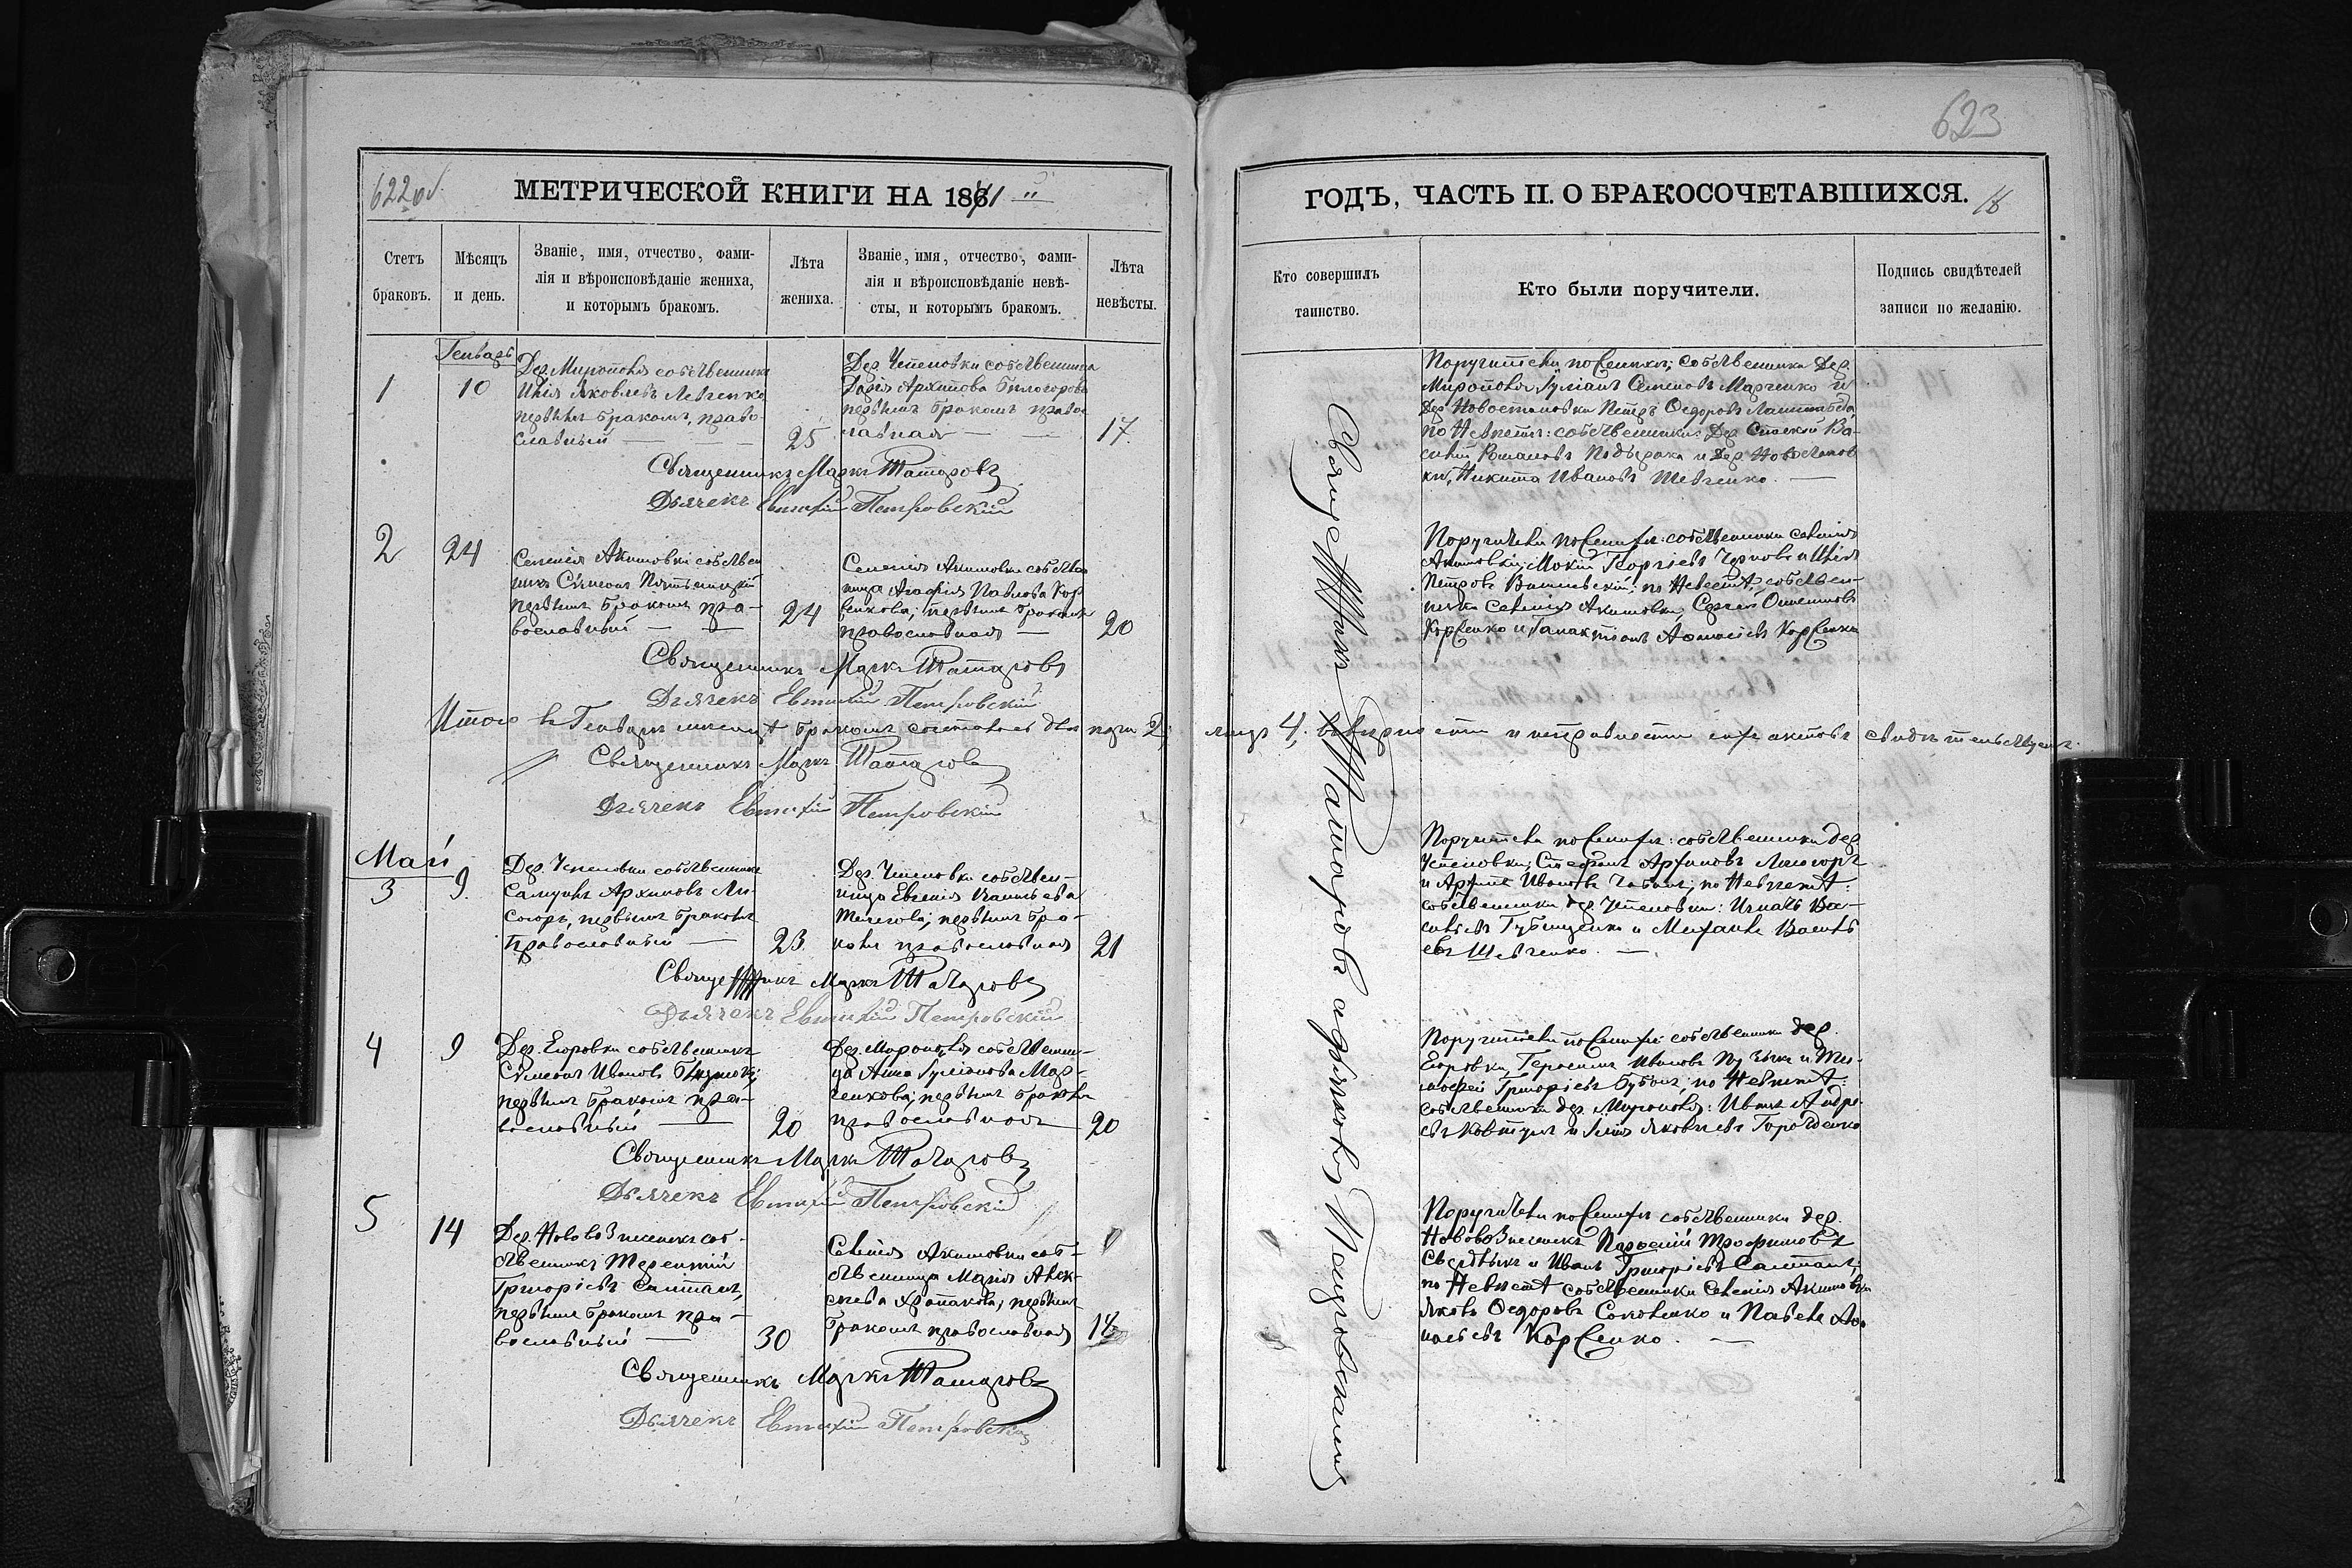 622 об.
МЕТРИЧЕСКОЙ КНИГИ НА 1871
Счетъ браковъ.
Мѣсяцъ и день.
Званіе, имя, отчество, фами-
лія и вѣроисповѣданіе жениха,
и которымъ бракомъ.
Лѣта жениха.
Званіе, имя, отчество, фами-
лія и вѣроисповѣданіе невѣ-
сты, и которымъ бракомъ.
Лѣта невѣсты.
Генварь
1
10
Дер. Мирополя собственникъ
Илія Яковлевъ Левченко
первымъ бракомъ, право-
славный
25
Дер. Успеновки собственница
Дарія Архипова Билогорова
первымъ бракомъ право
славная
17.
Священникъ Маркъ Татаровъ
Дьячекъ Евтихій Петровскій
2
24
Селенія Акимовки собствен
никъ Симеонъ
первымъ бракомъ пра-
вославный
24
Селенія Акимовки собствен
ница Агафія Павлова Кор
женкова; первымъ бракомъ
православная
20
Священникъ Маркъ Татаровъ
Дьячекъ Евтихій Петровскій
Итого въ Генварѣ мѣсяцѣ бракомъ сочеталось два пары 2,
Священникъ Маркъ Татаровъ
Дьячекъ Евтихій Петровскій
Май
3
9.
Дер. Успеновки собственникъ
Самуилъ Архиповъ Ли-
согоръ, первымъ бракомъ
православный
23
Дер. Успеновки собствен-
ница Евгенія
первымъ бра-
комъ православная
21
Священникъ Маркъ Татаровъ
Дьячекъ Евтихій Петровскій
4
9
Дер. Егоровки собственникъ
Симеонъ Ивановъ
первымъ бракомъ пра-
вославный
20
Дер. Мирополя собственни-
ца Анна Гуліанова Мар-
ченкова; первымъ бракомъ
православная
20
Священникъ Маркъ Татаровъ
Дьячекъ Евтихій Петровскій
5
14
Дер. Нововознесенки соб-
ственникъ Терентій
Григоріевъ Салтанъ,
первымъ бракомъ пра-
вославный
30
Селенія Акимовки соб-
ственница Марія Алек-
сѣева первымъ
бракомъ православная
18
Священникъ Маркъ Татаровъ
Дьячекъ Евтихій Петровскій
623
ГОДЪ, ЧАСТЬ II. О БРАКОСОЧЕТАВШИХСЯ.
18
Кто совершилъ таинство.
Кто были поручители.
Подпись свидѣтелей
записи по желанію.
Священникъ Маркъ Татаровъ съ дьячкомъ Петровскимъ
Поручители по женихѣ; собственники Дер.
Мирополя, Гуліанъ Семеновъ Марченко и
Дер. Новостановки Петръ Федоровъ
по Невѣстѣ: собственники: Дер. Ва-
силій Романовъ и Дер. Новостанов
ки, Никита Ивановъ Шевченко.
Поручители по женихѣ: собственники селенія
Акимовки; Мокій Георгіевъ Черновъ и Илія
Петровъ по Невѣстѣ; собствен-
ники селенія Акимовки Сергѣй
Корженко и Галактіонъ Корженко
лицъ 4, въ вѣрности и исправности сихъ актовъ свидѣтельствуемъ.
Поручители по женихѣ: собственники дер.
Успеновки; Стефанъ Архиповъ Лисогоръ
и Архипъ Ивановъ Чабанъ; по Невѣстѣ:
собственники дер. Успеновки: Игнатъ Ва-
сильевъ Губищенко и Михаилъ Василь
евъ Шевченко.
Поручители по женихѣ: собственники дер.
Егоровки, Герасимъ Ивановъ и Ти-
мофей Григоріевъ по Невѣстѣ:
собственники дер. Мирополя: Иванъ Андре-
евъ Ковтунъ и Илія Яковлевъ Горденко
Поручители по женихѣ собственники дер.
Нововознесенки Трофимовъ
и Иванъ Григоріевъ Салтанъ;
по Невѣстѣ собственники Селенія Акимовки
Яковъ Федоровъ Соколенко и Павелъ
Корженко.